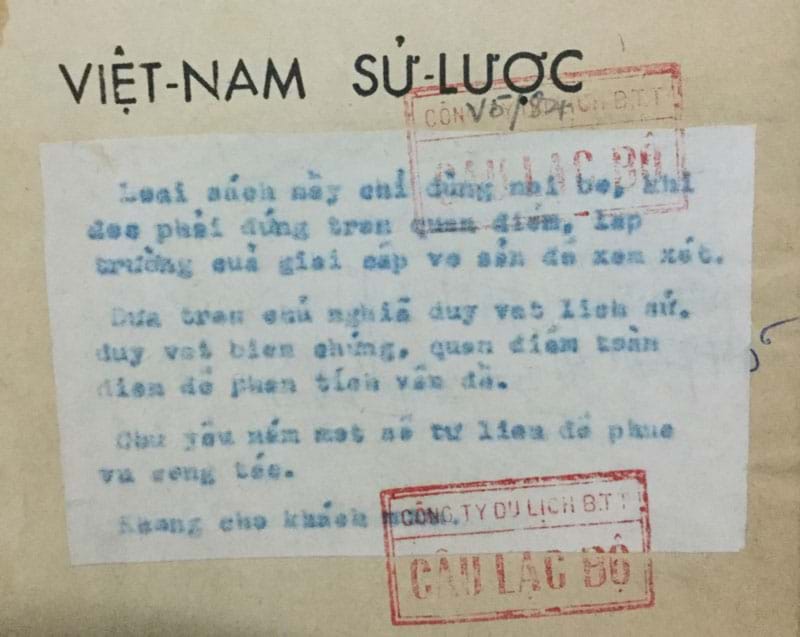 VIỆT-NAM SỬ-LƯỢC
CÔNG TY DU LỊCH B.T.T
V5/82
CÂU LẠC BỘ
Loai sách nầy chỉ dùng nội bộ, khi
doc phải đứng tren quan điểm, lap
trường cuả giai cấp vo sản để xem xét.
Dưa tren chủ nghiã duy vat lich sử,
duy vat bien chứng, quan điểm toàn
dien để phan tích vấn đề.
Chu yếu nắm mot số tư lieu để phuc
vu cong tác.
Khong cho khách
CÔNG TY DU LỊCH B.T.T
CÂU LẠC BỘ